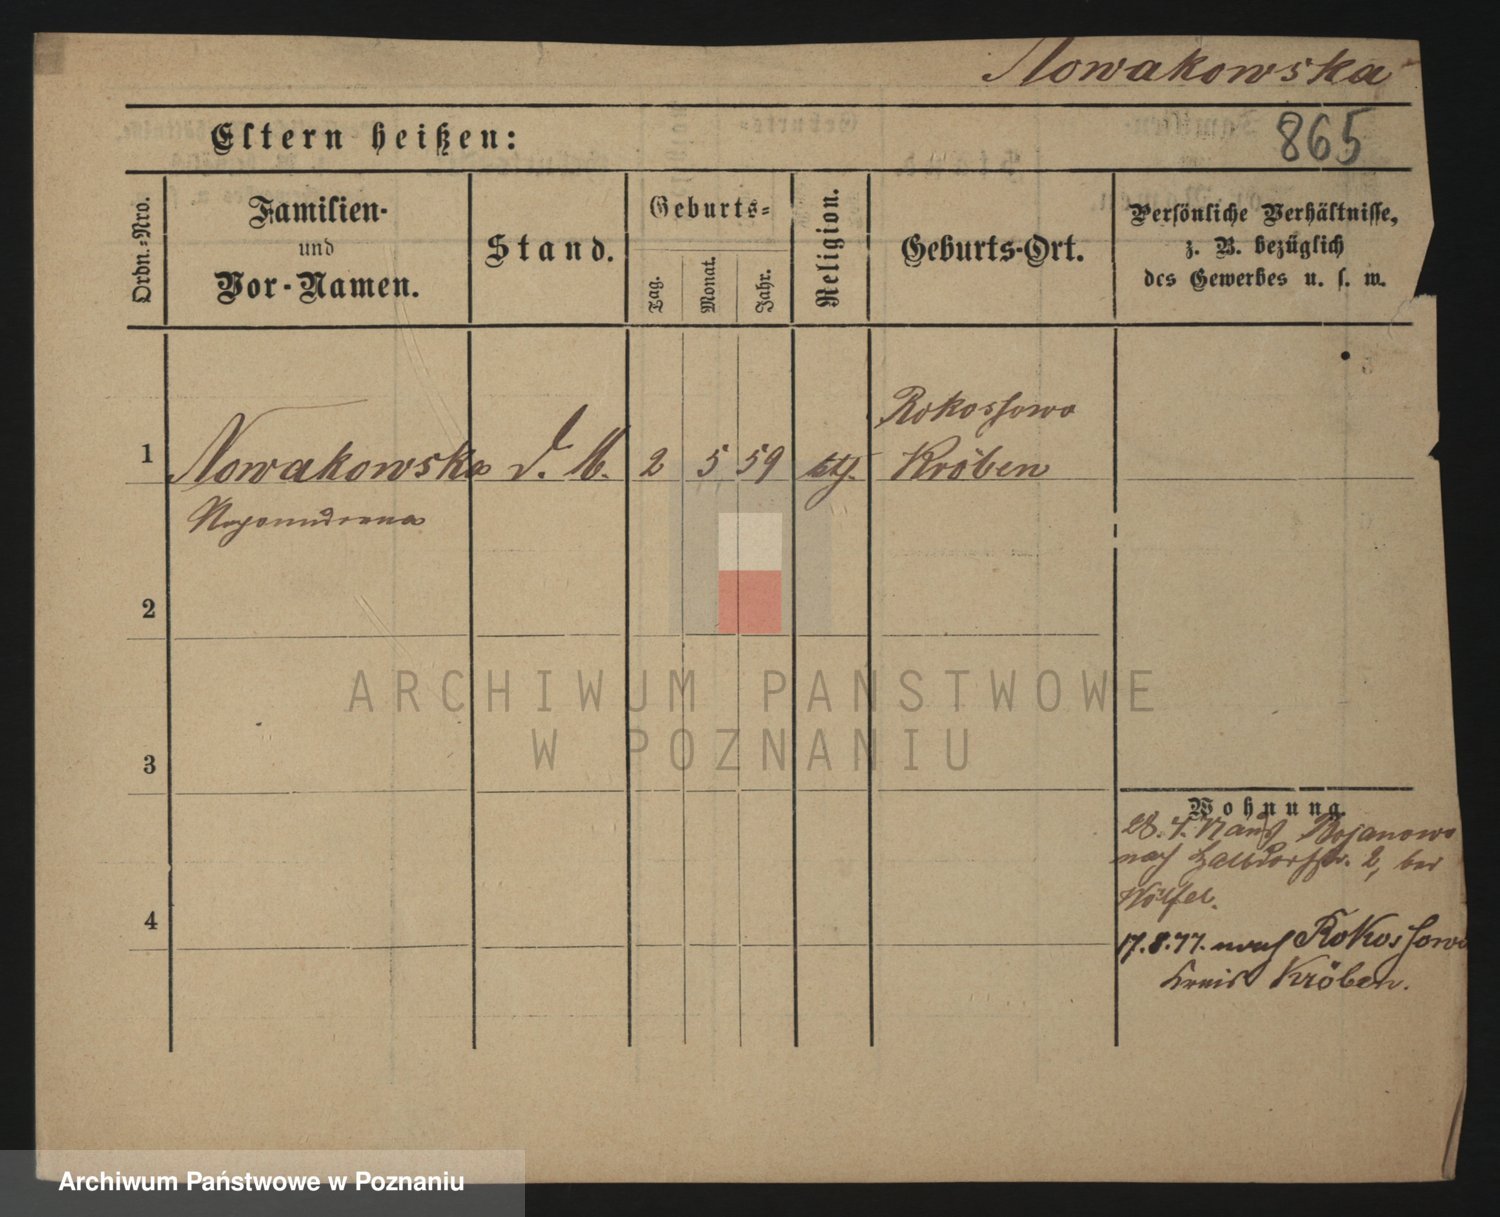 Nowakowska
865
Eltern heißen:
Ordn.-Nro.
Familien-
und
Vor-Namen.
Stand.
Geburts-
Tag.
Monat.
Jahr.
Religion.
Geburts-Ort.
Persönliche Verhältnisse,
z. B. bezüglich
des Gewerbes u. s. w.
Rokossowo
1 Nowakowska d. M. 2 5 59 kth. Kröben
2
3
4
ARCHIWUM PAŃSTWOWE
W POZNANIU
Wohnung.
Bojanowo
nach Halbdorfstr. 2, bei
Wölfel.
17.8.77. nach Rokossowo
Kreis Kröben.
Archiwum Państwowe w Poznaniu